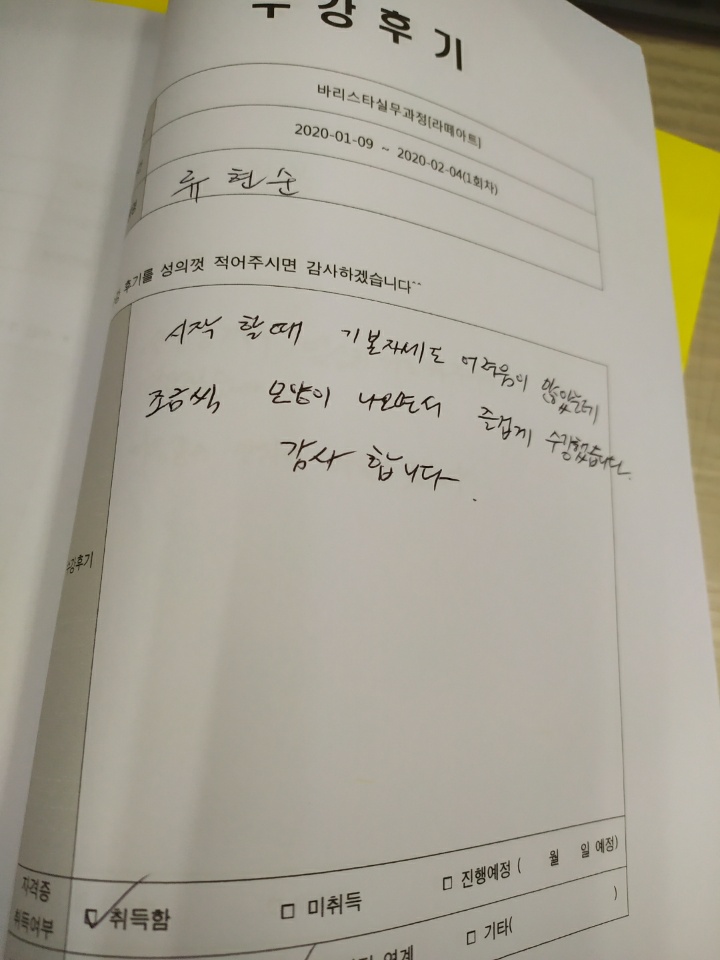 수강후기
바리스타실무과정[라떼아트]
2020-01-09 ~ 2020-02-04(1회차)
류현순
후기를 성의껏 적어주시면 감사하겠습니다^^
시작 할때 기본자세도 어려움이 많았는데
조금씩 모양이 나오면서 즐겁게 수강했습니다.
감사 합니다.
수강후기
자격증
취득여부
☑ 취득함 □ 미취득 □ 진행예정 ( 월 일 예정)
연계 □ 기타( )